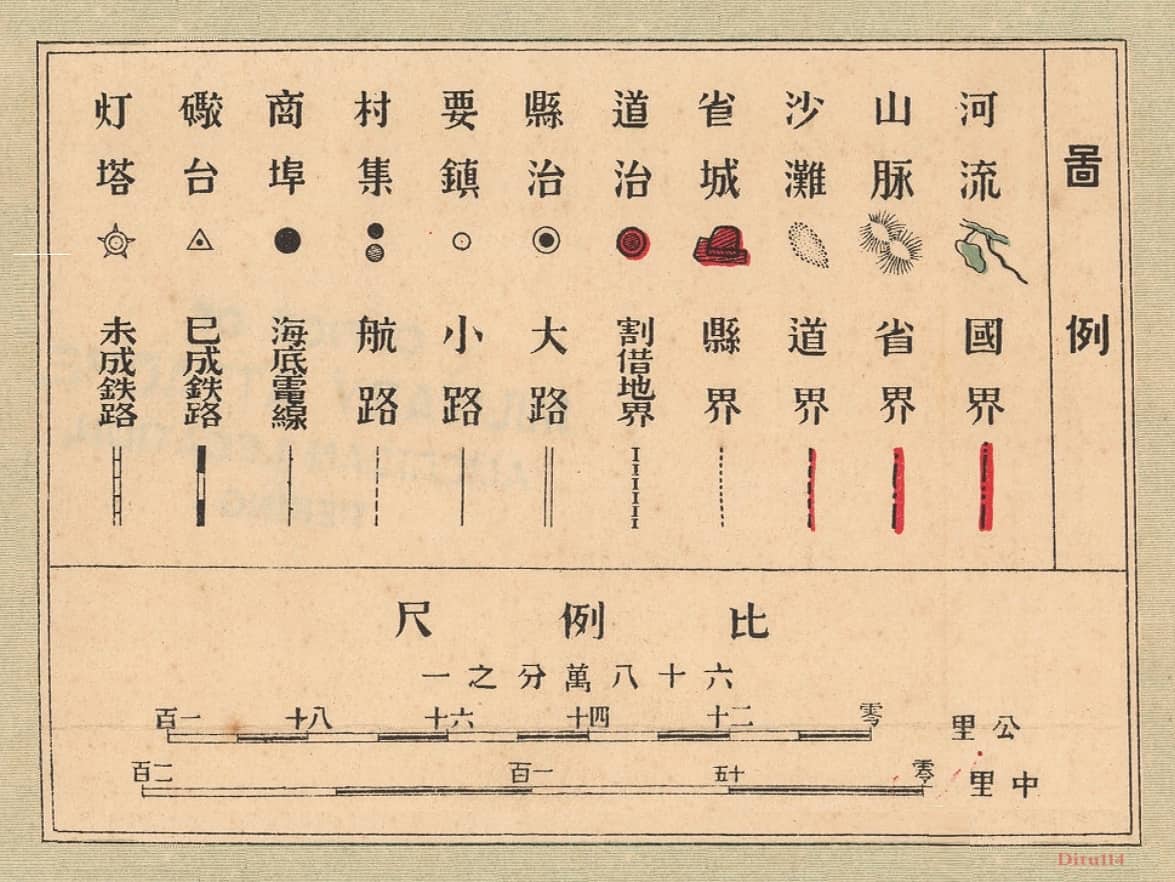 啚例
河流
山脉
沙灘
省城
道治
縣治
要鎮
村集
商埠
礮台
灯塔
國界
省界
道界
縣界
割借地界
大路
小路
航路
海底電線
已成鉄路
未成鉄路
比例尺
六十八萬分之一
公里
零
二十
四十
六十
八十
一百
中里
零
五十
一百
二百
Ditu114